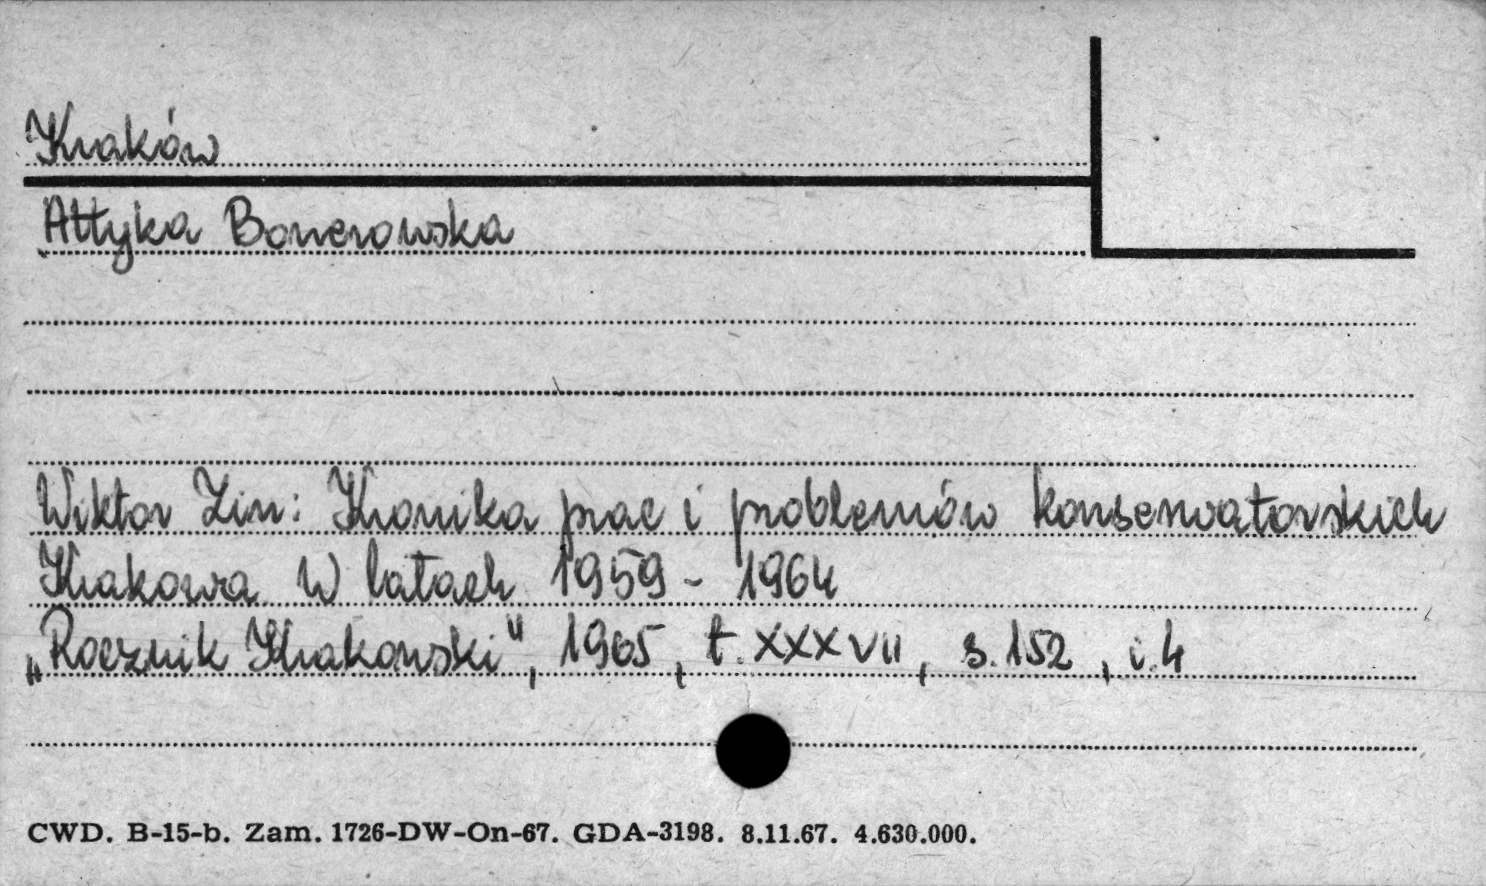 Kraków
Attyka Bonerowska
Wiktor Zin: Kronika prac i problemów konserwatorskich
Krakowa W latach 1959 - 1964
„Rocznik Krakowski", 1965, t. XXXVII, s. 152, i. 4
CWD. B-15-b. Zam. 1726-DW-On-67. GDA-3198. 8.11.67. 4.630.000.